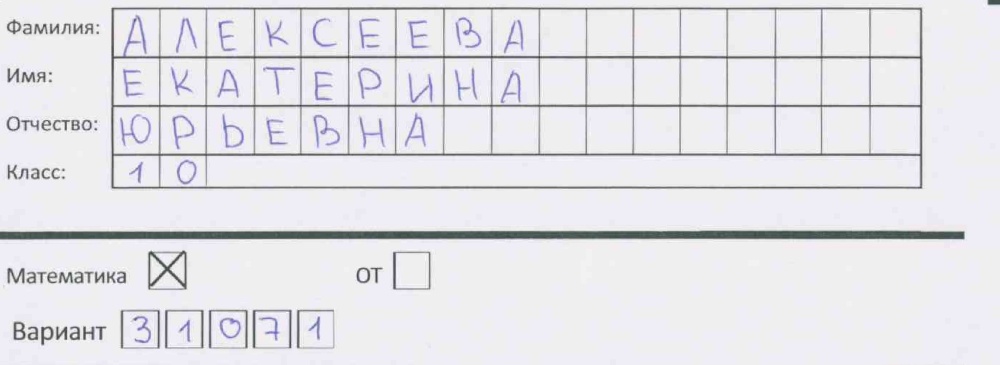 Фамилия: АЛЕКСЕЕВА
Имя: ЕКАТЕРИНА
Отчество: ЮРЬЕВНА
Класс: 10
Математика ОТ
Вариант 31071